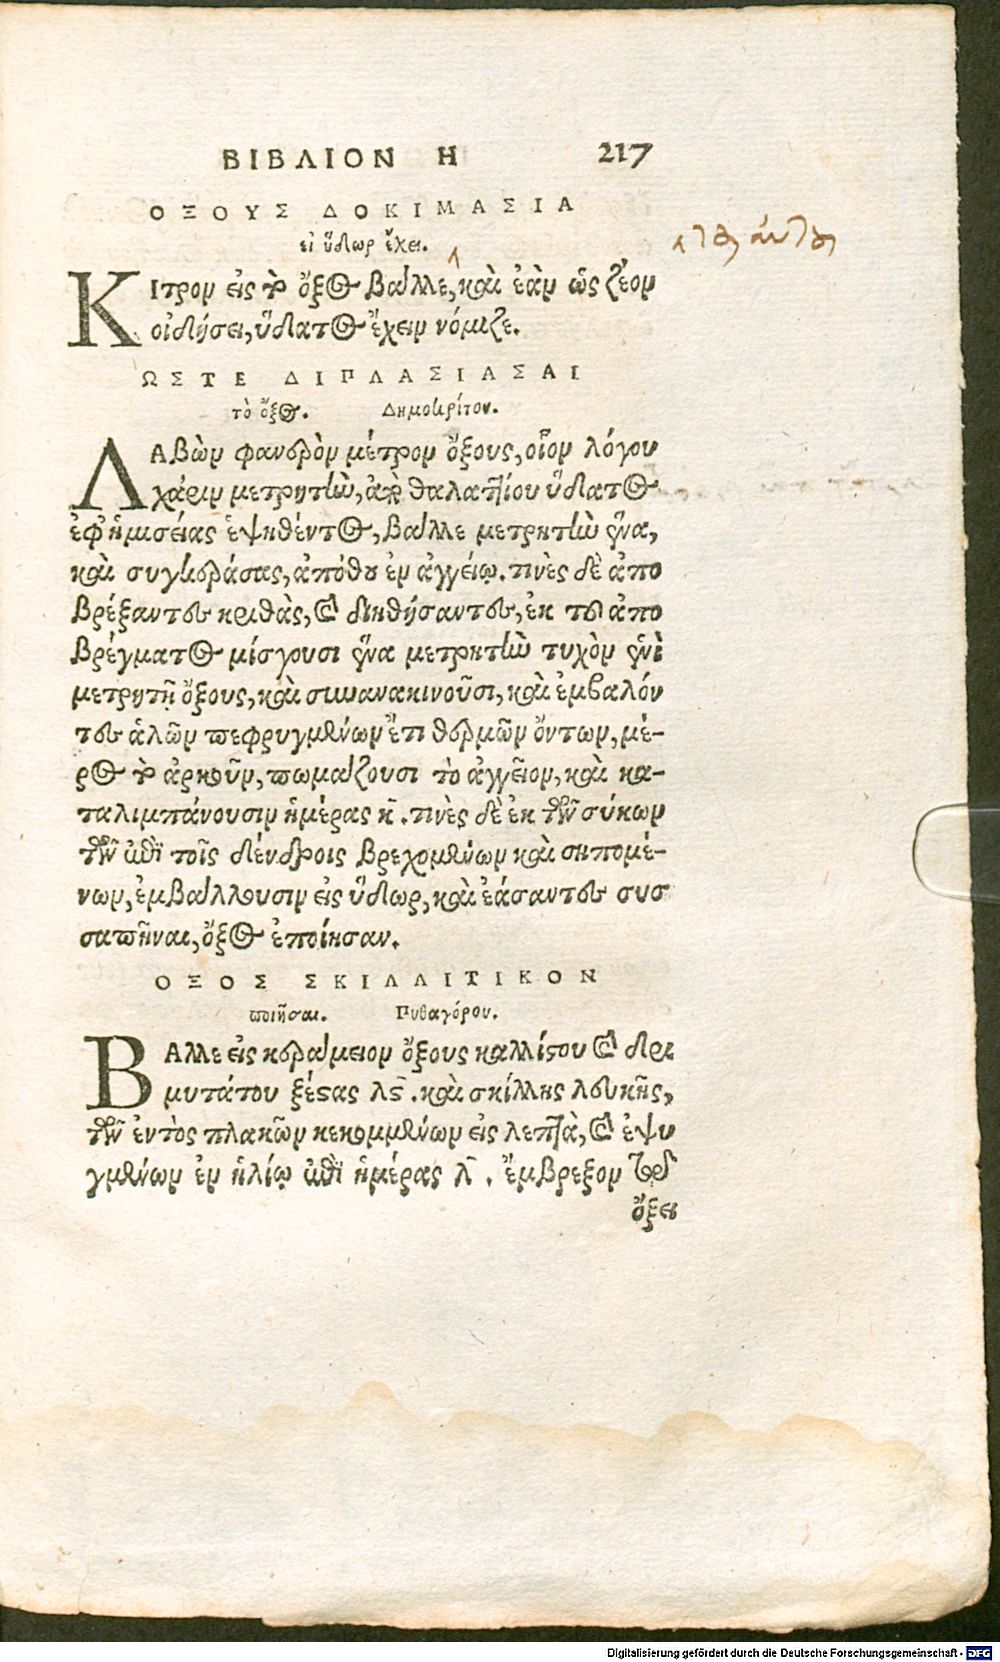 ΒΙΒΛΙΟΝ Η 217
ΟΞΟΥΣ ΔΟΚΙΜΑΣΙΑ
εἰ ὕδωρ ἔχει.
ΚΙτρον εἰς τὸ ὄξος βάλλε, καὶ ἐὰν ὡς ζέον
οἰδήσει, ὕδατος ἔχειν νόμιζε.
ΩΣΤΕ ΔΙΠΛΑΣΙΑΣΑΙ
τὸ ὄξος. Δημοκρίτου.
ΛΑβὼν φανερὸν μέτρον ὄξους, οἷον λόγου
χάριν μετρητὴν, ἀπὸ θαλαττίου ὕδατος
ἐφ' ἡμισείας ἑψηθέντος, βάλλε μετρητὴν ἕνα,
καὶ συγκεράσας, ἀπόθου ἐν ἀγγείῳ. τινὲς δὲ ἀπο
βρέξαντες κριθὰς, καὶ διηθήσαντες, ἐκ τοῦ ἀπο
βρέγματος μίσγουσι ἕνα μετρητὴν τυχὸν ἑνὶ
μετρητῇ ὄξους, καὶ συνανακινοῦσι, καὶ ἐμβαλόν
τες ἁλῶν πεφρυγμένων ἔτι θερμῶν ὄντων, μέ-
ρος τὸ ἀρκοῦν, πωμάζουσι τὸ ἀγγεῖον, καὶ κα-
ταλιμπάνουσιν ἡμέρας κ̄. τινὲς δὲ ἐκ τῶν σύκων
τῶν ἐπὶ τοῖς δένδροις βρεχομένων καὶ σηπομέ-
νων, ἐμβάλλουσιν εἰς ὕδωρ, καὶ ἐάσαντες συσ
σαπῆναι, ὄξος ἐποίησαν.
ΟΞΟΣ ΣΚΙΛΛΙΤΙΚΟΝ
ποιῆσαι. Πυθαγόρου.
ΒΑλλε εἰς κεράμειον ὄξους καλλίστου καὶ δρι
μυτάτου ξέστας λϛ̄. καὶ σκίλλης λευκῆς,
τῶν ἐντὸς πλακῶν κεκομμένων εἰς λεπτὰ, καὶ ἐψυ
γμένων ἐν ἡλίῳ ἐπὶ ἡμέρας λ̄. ἔμβρεξον τῷ
ὄξει
Digitalisierung gefördert durch die Deutsche Forschungsgemeinschaft - DFG